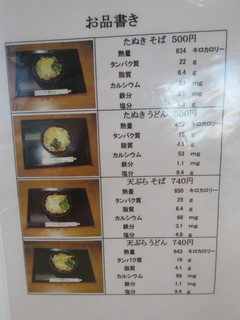 お品書き
たぬき そば 500円
熱量 634 キロカロリー
タンパク質 22 g
脂質 6.4 g
カルシウム mg
鉄分 mg
塩分 g
たぬき うどん 500円
熱量 キロカロリー
タンパク質 g
脂質 4.1 g
カルシウム 53 mg
鉄分 1.1 mg
塩分 g
天ぷら そば 740円
熱量 650 キロカロリー
タンパク質 25 g
脂質 6.4 g
カルシウム mg
鉄分 3.1 mg
塩分 g
天ぷら うどん 740円
熱量 642 キロカロリー
タンパク質 g
脂質 4.1 g
カルシウム mg
鉄分 1.1 mg
塩分 g